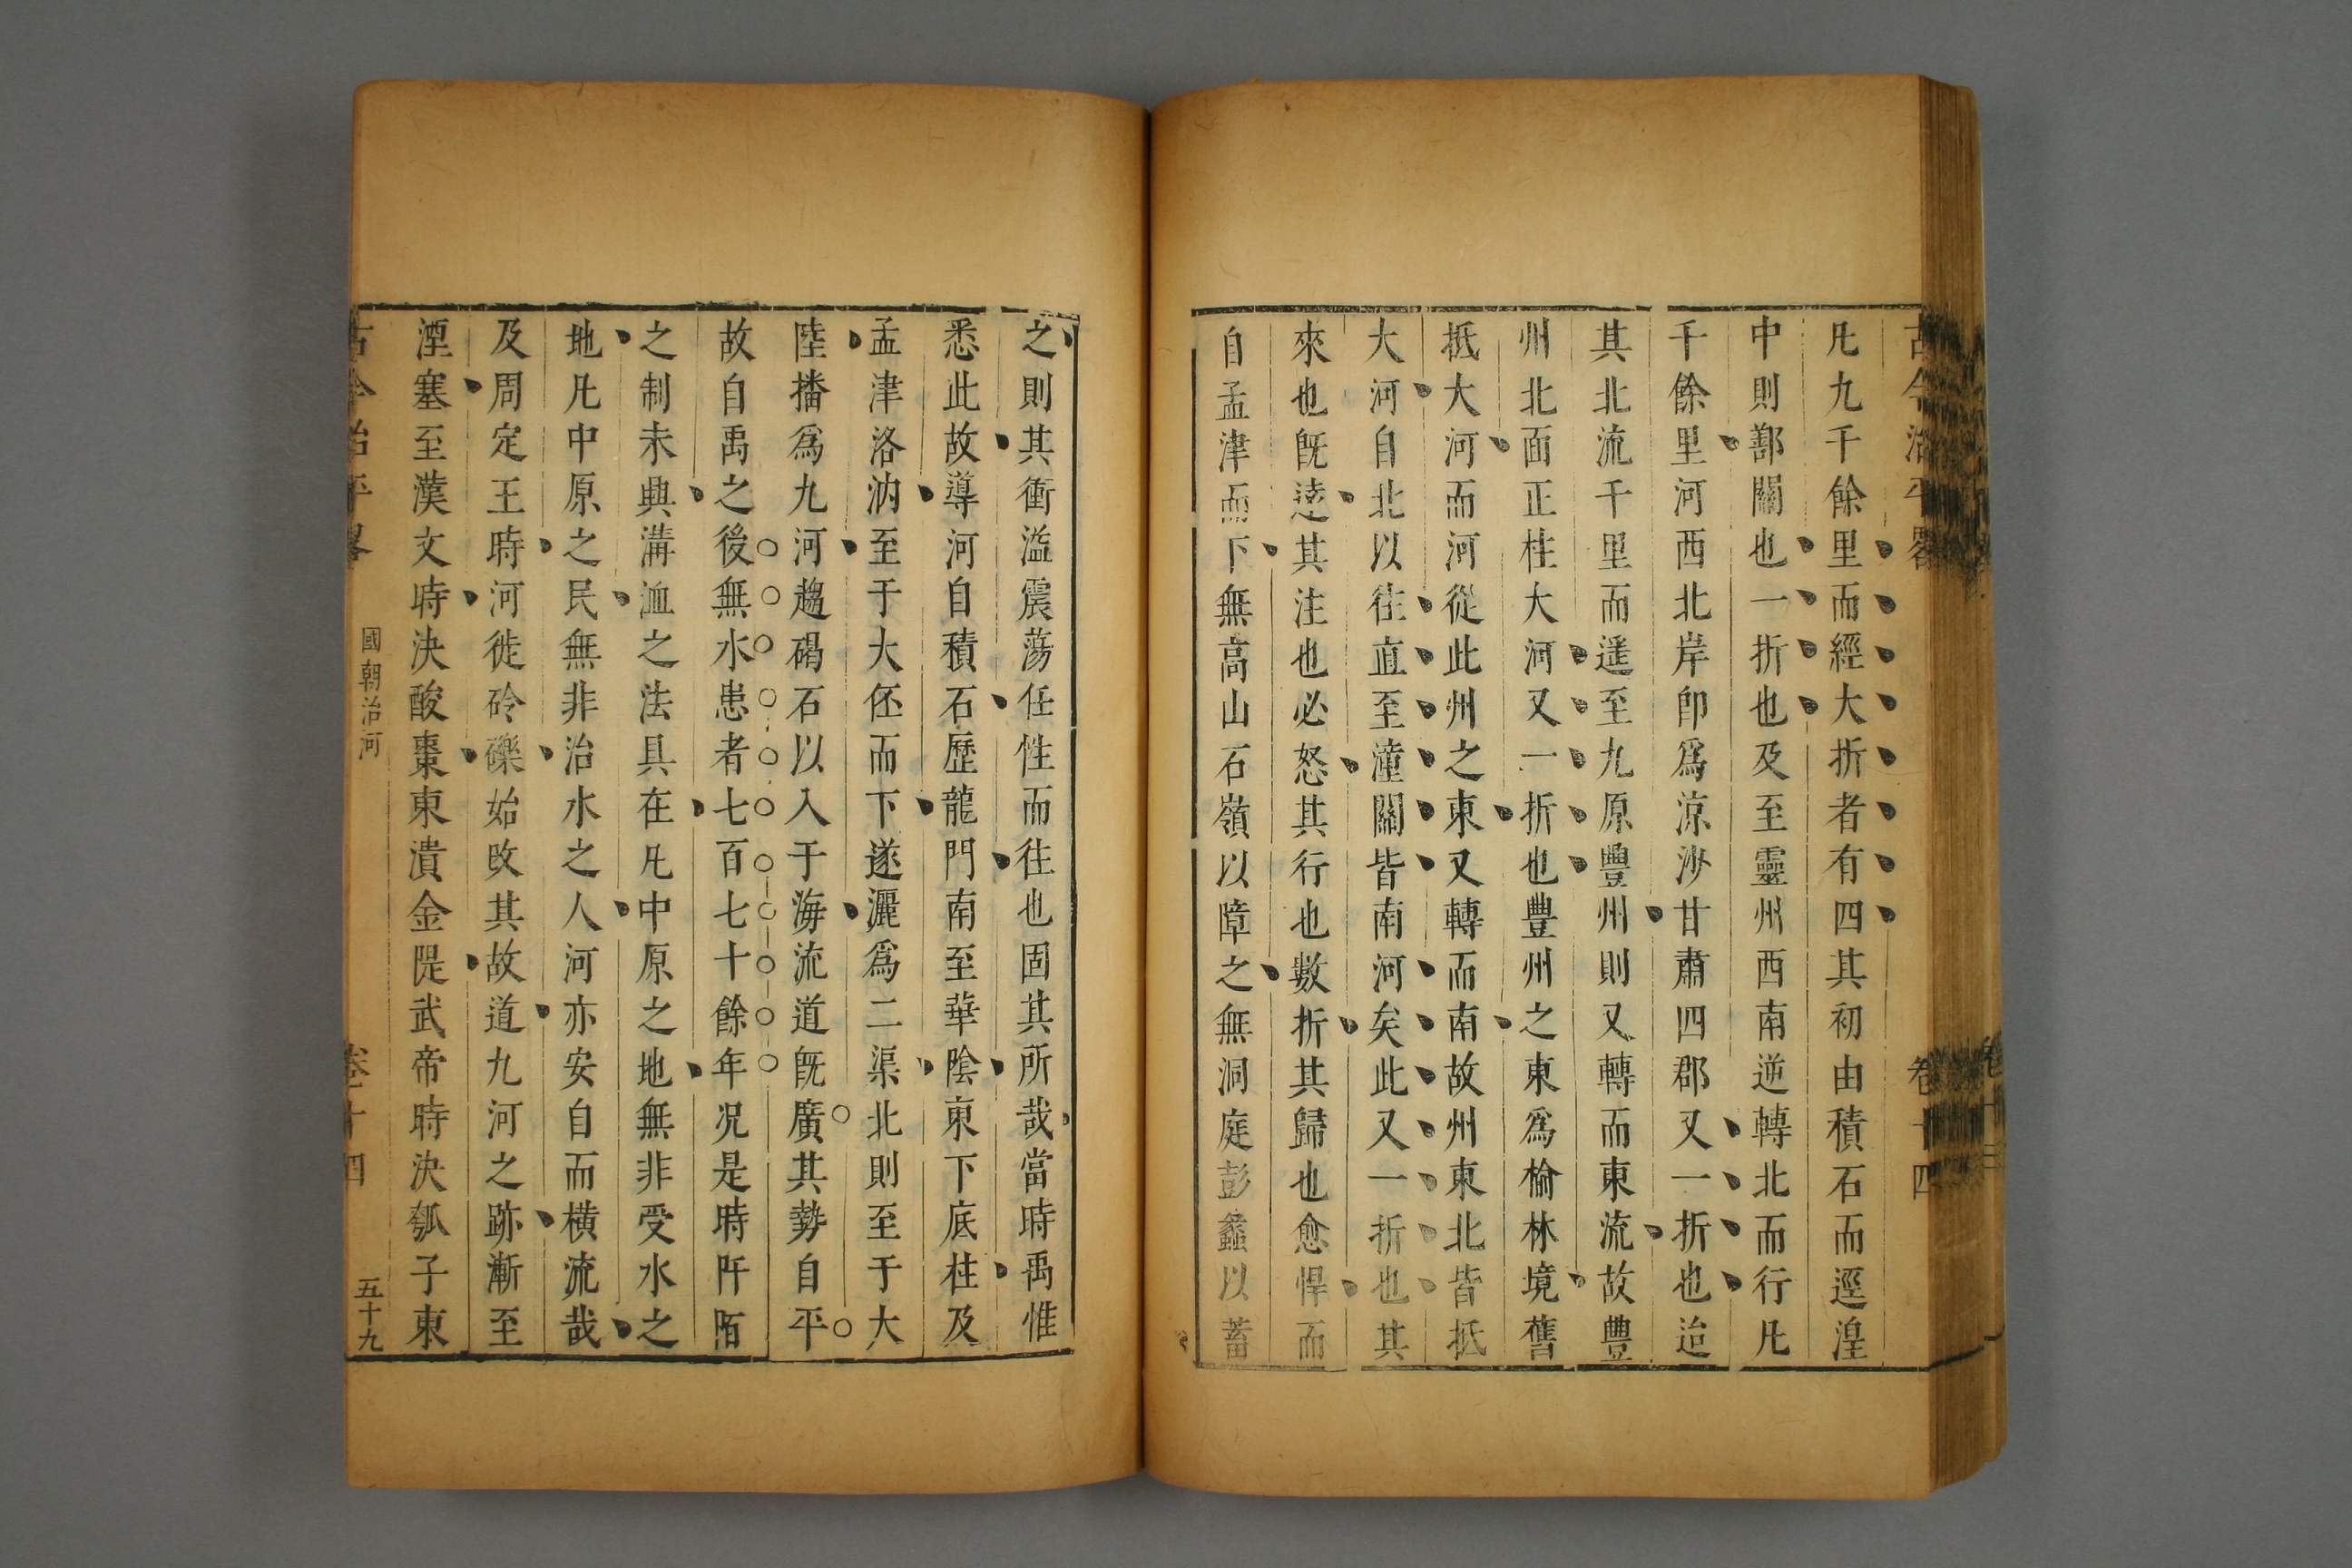 古今治平畧 卷十四
凡九千餘里而經大折者有四其初由積石而逕湟
中則鄯闌也一折也及至靈州西南逆轉北而行凡
千餘里河西北岸卽爲涼沙甘肅四郡又一折也迨
其北流千里而遥至九原豐州則又轉而東流故豐
州北面正柱大河又一折也豐州之東爲榆林境舊
抵大河而河從此州之東又轉而南故州東北皆抵
大河自北以往直至潼關皆南河矣此又一折也其
來也旣逺其注也必怒其行也數折其歸也愈悍而
自孟津而下無高山石嶺以障之無洞庭彭蠡以蓄
之則其衝溢震蕩任性而往也固其所哉當時禹惟
悉此故導河自積石歷龍門南至華陰東下底柱及
孟津洛汭至于大伾而下遂灑爲二渠北則至于大
陸播爲九河趨碣石以入于海流道旣廣其勢自平
故自禹之後無水患者七百七十餘年況是時阡陌
之制未興溝洫之法具在凡中原之地無非受水之
地凡中原之民無非治水之人河亦安自而橫流哉
及周定王時河徙砱礫始改其故道九河之跡漸至
湮塞至漢文時決酸棗東潰金隄武帝時決瓠子東
古今治平畧 國朝治河 卷十四 五十九